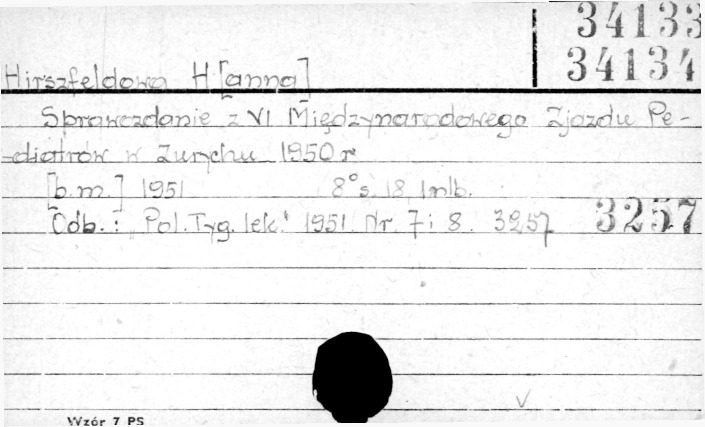 34133
34134
Hirszfeldowa H[anna]
Sprawozdanie z VI Międzynarodowego Zjazdu Pe-
-diatrów w Zurychu 1950 r
[b.m.] 1951 8° s. 18, 1 nlb.
Odb.: "Pol. Tyg. lek." 1951. Nr. 7 i 8. 3257 3257
Wzór 7 PS